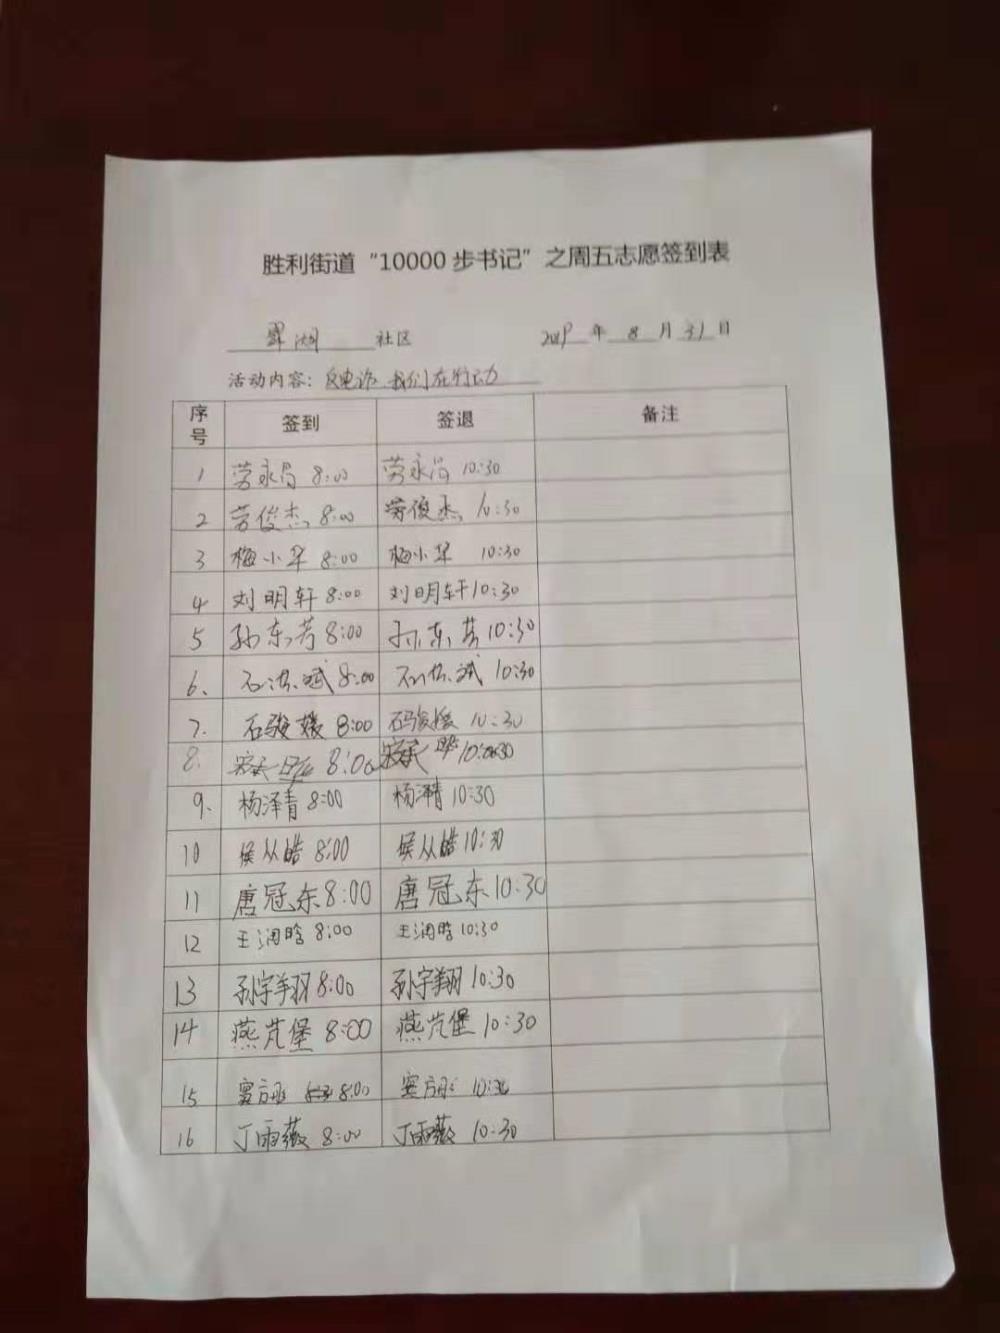 胜利街道“10000步书记”之周五志愿签到表
翠湖 社区 2019年 8 月 31 日
活动内容：反电诈 我们在行动
序号 签到 签退 备注
1 劳永 8:00 劳永 10:30
2 劳俊杰 8:00 劳俊杰 10:30
3 梅小 8:00 梅小 10:30
4 刘明轩 8:00 刘明轩 10:30
5 孙东芳 8:00 孙东芳 10:30
6、 石 斌 8:00 石 斌 10:30
7. 石骏媛 8:00 石骏媛 10:30
8. 8:00 10:30
9. 杨泽青 8:00 杨泽青 10:30
10 侯从皓 8:00 侯从皓 10:30
11 唐冠东 8:00 唐冠东 10:30
12 王润晗 8:00 王润晗 10:30
13 孙宇翔 8:00 孙宇翔 10:30
14 燕芃堡 8:00 燕芃堡 10:30
15 窦方彤 8:00 窦方彤 10:30
16 丁雨薇 8:00 丁雨薇 10:30